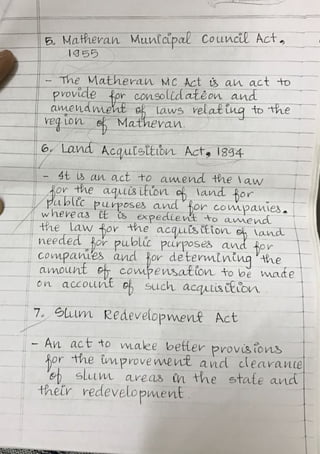 5. Matheran Municipal Council Act,
1955
- The Matheran MC Act is an act to
provide for consolidation and
amendment of laws relating to the
region of Matheran.
6. Land Acquisition Act, 1894
- It is an act to amend the law
for the aquisition of land for
public purposes and for companies.
whereas it is expedient to amend
the law for the acquisition of land
needed for public purposes and for
companies and for determining the
amount of compensation to be made
on account of such acquisition
7. Slum Redevelopment Act
- An act to make better provisions
for the improvement and clearance
of slum areas in the state and
their redevelopment.